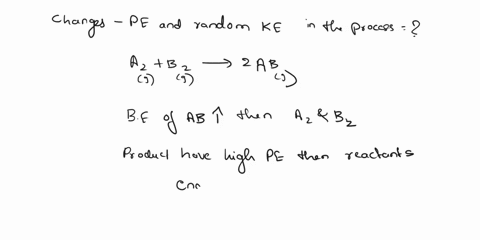 Changes - PE and random KE in the process = ?
A2 + B2 → 2 AB
(g) (g) (g)
B.E of AB ↑ then A2 & B2
Product have high PE then reactants